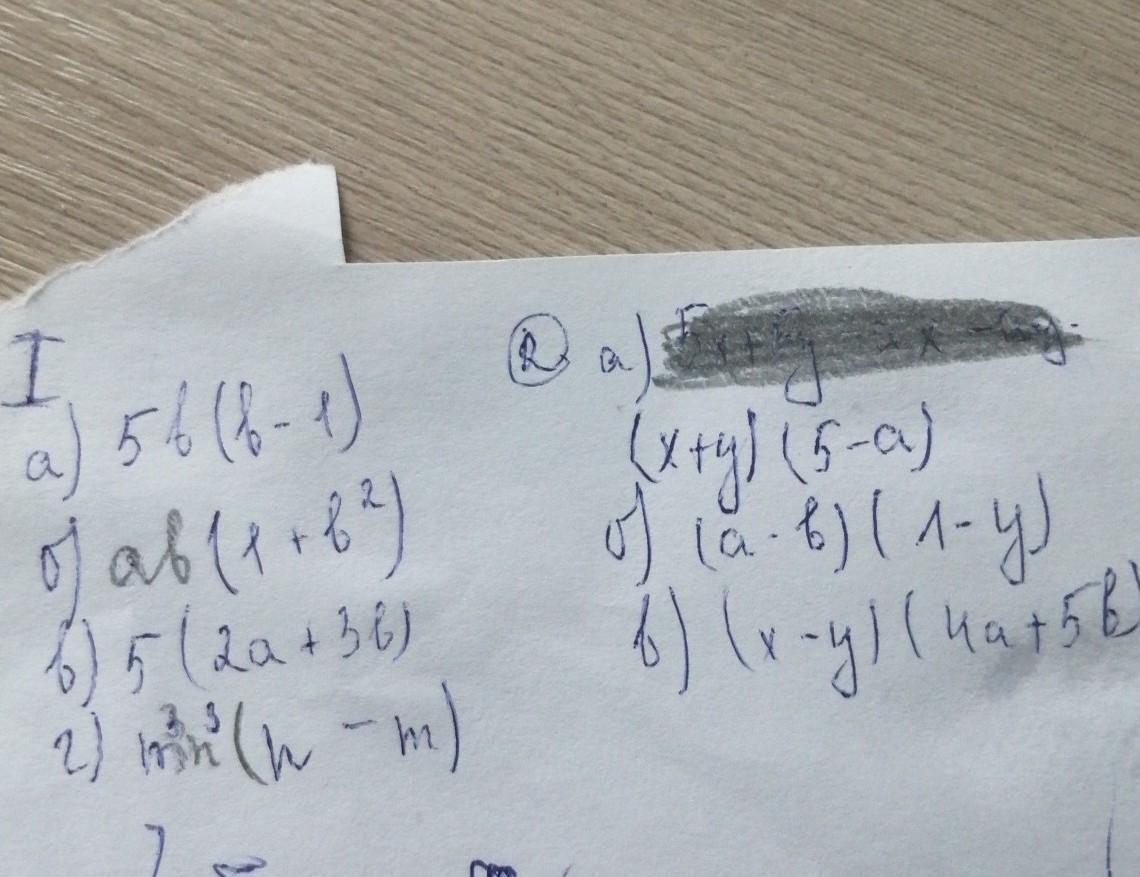 I
а) 5b(b-1)
б) ab(1+b²)
в) 5(2a+3b)
г) m³n³(n-m)
② а)
(x+y)(5-a)
б) (a-b)(1-y)
в) (x-y)(4a+5b)